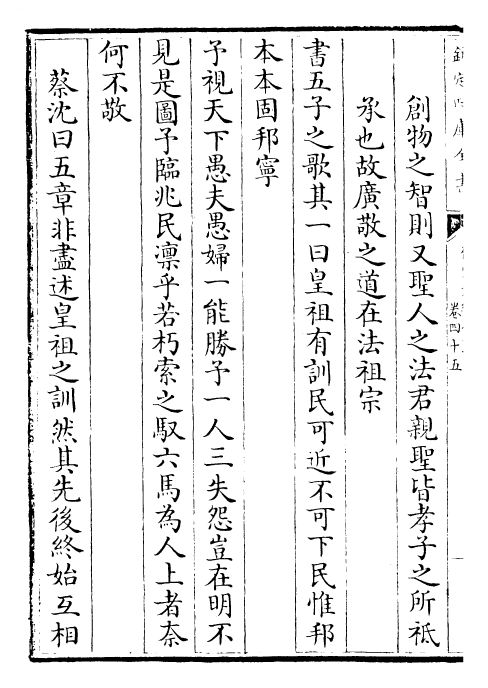 欽定四庫全書
卷四十五
創物之智則又聖人之法君親聖皆孝子之所祗
承也故廣敬之道在法祖宗
書五子之歌其一曰皇祖有訓民可近不可下民惟邦
本本固邦寧
予視天下愚夫愚婦一能勝予一人三失怨豈在明不
見是圖予臨兆民凛乎若朽索之馭六馬為人上者奈
何不敬
蔡沈曰五章非盡述皇祖之訓然其先後終始互相